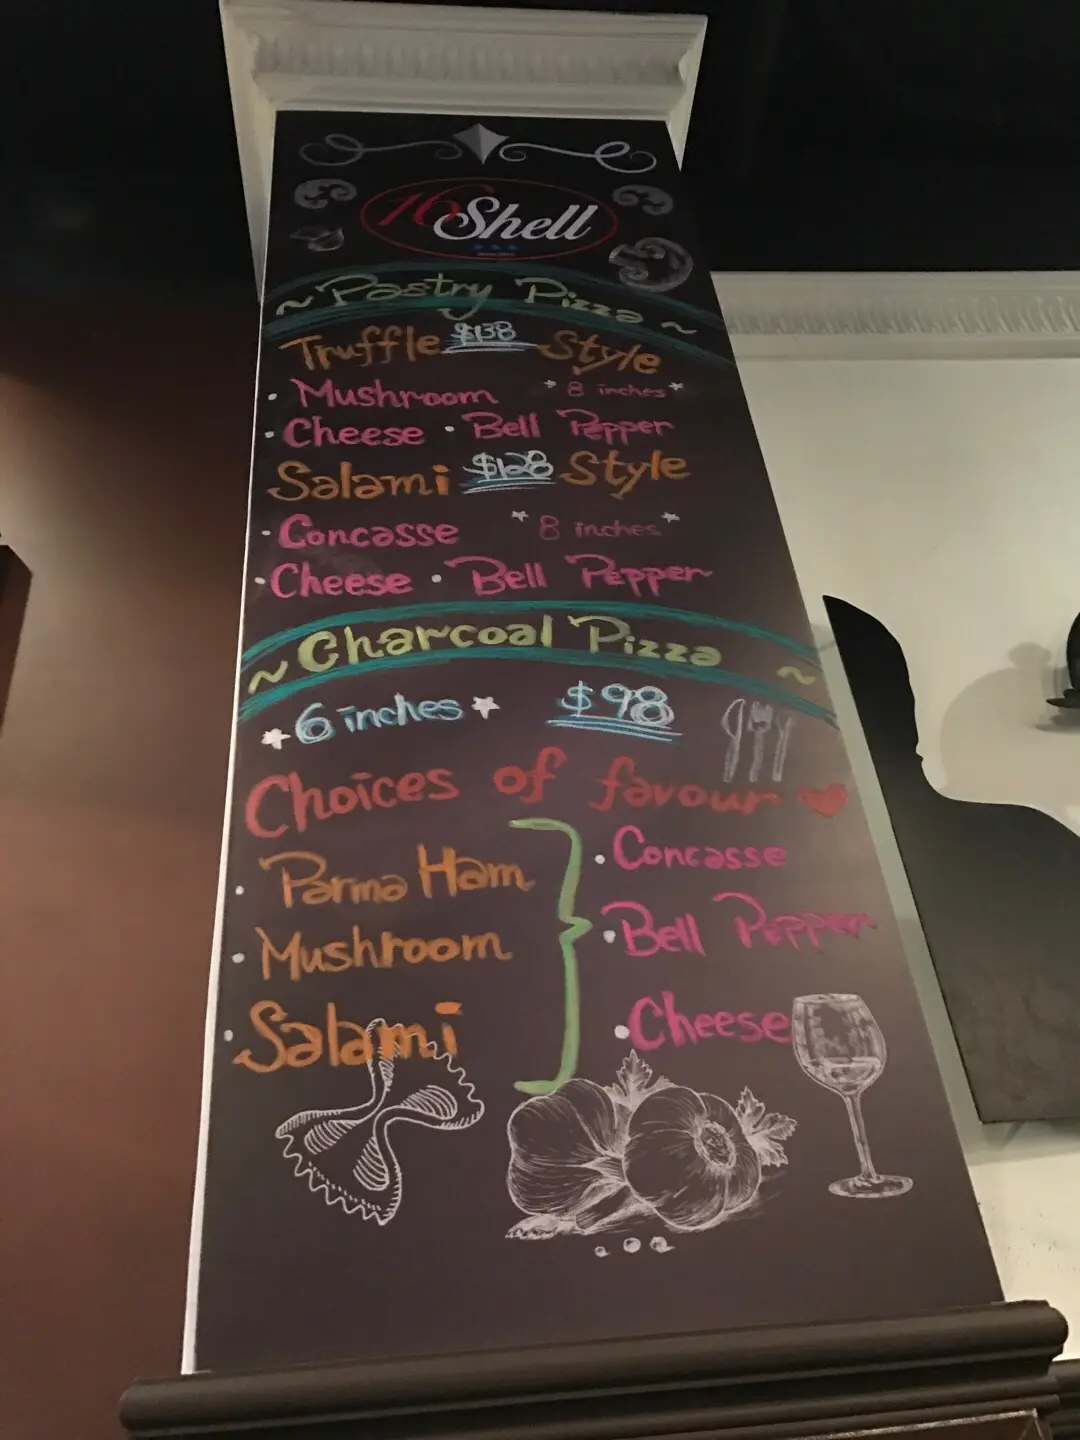 16 Shell
~ Pastry Pizza ~
Truffle $138 Style
• Mushroom * 8 inches *
• Cheese • Bell Pepper
Salami $128 Style
• Concasse * 8 inches *
• Cheese • Bell Pepper
~ Charcoal Pizza ~
* 6 inches * $98
Choices of favour
• Parma Ham
• Mushroom
• Salami
• Concasse
• Bell Pepper
• Cheese